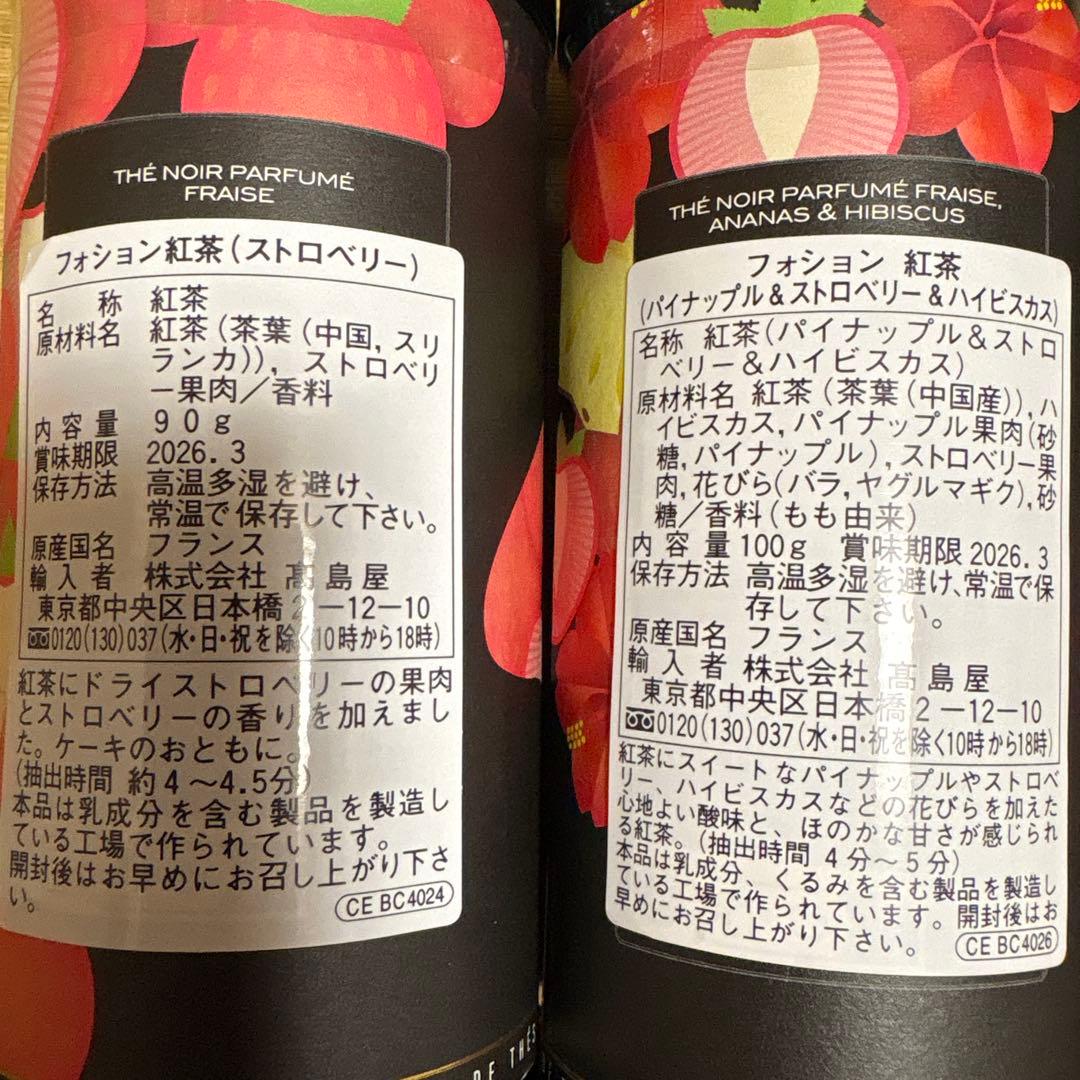 THÉ NOIR PARFUMÉ
FRAISE
フォション紅茶(ストロベリー)
名称 紅茶
原材料名 紅茶(茶葉(中国,スリ
ランカ)),ストロベリ
ー果肉/香料
内容量 90g
賞味期限 2026.3
保存方法 高温多湿を避け、
常温で保存して下さい。
原産国名 フランス
輸入者 株式会社 髙島屋
東京都中央区日本橋2-12-10
0120(130)037(水・日・祝を除く10時から18時)
紅茶にドライストロベリーの果肉
とストロベリーの香りを加えまし
た。ケーキのおともに。
(抽出時間 約4~4.5分)
本品は乳成分を含む製品を製造し
ている工場で作られています。
開封後はお早めにお召し上がり下さ
い。
CE BC4024
THÉ NOIR PARFUMÉ FRAISE,
ANANAS & HIBISCUS
フォション 紅茶
(パイナップル&ストロベリー&ハイビスカス)
名称 紅茶(パイナップル&ストロ
ベリー&ハイビスカス)
原材料名 紅茶(茶葉(中国産)),ハ
イビスカス,パイナップル果肉(砂
糖,パイナップル),ストロベリー果
肉,花びら(バラ,ヤグルマギク),砂
糖/香料(もも由来)
内容量 100g 賞味期限 2026.3
保存方法 高温多湿を避け、常温で保
存して下さい。
原産国名 フランス
輸入者 株式会社 髙島屋
東京都中央区日本橋2-12-10
0120(130)037(水・日・祝を除く10時から18時)
紅茶にスイートなパイナップルやストロベ
リー、ハイビスカスなどの花びらを加えた
心地よい酸味と、ほのかな甘さが感じられ
る紅茶。(抽出時間 4分~5分)
本品は乳成分、くるみを含む製品を製造し
ている工場で作られています。開封後はお
早めにお召し上がり下さい。
CE BC4026
DE THÉS